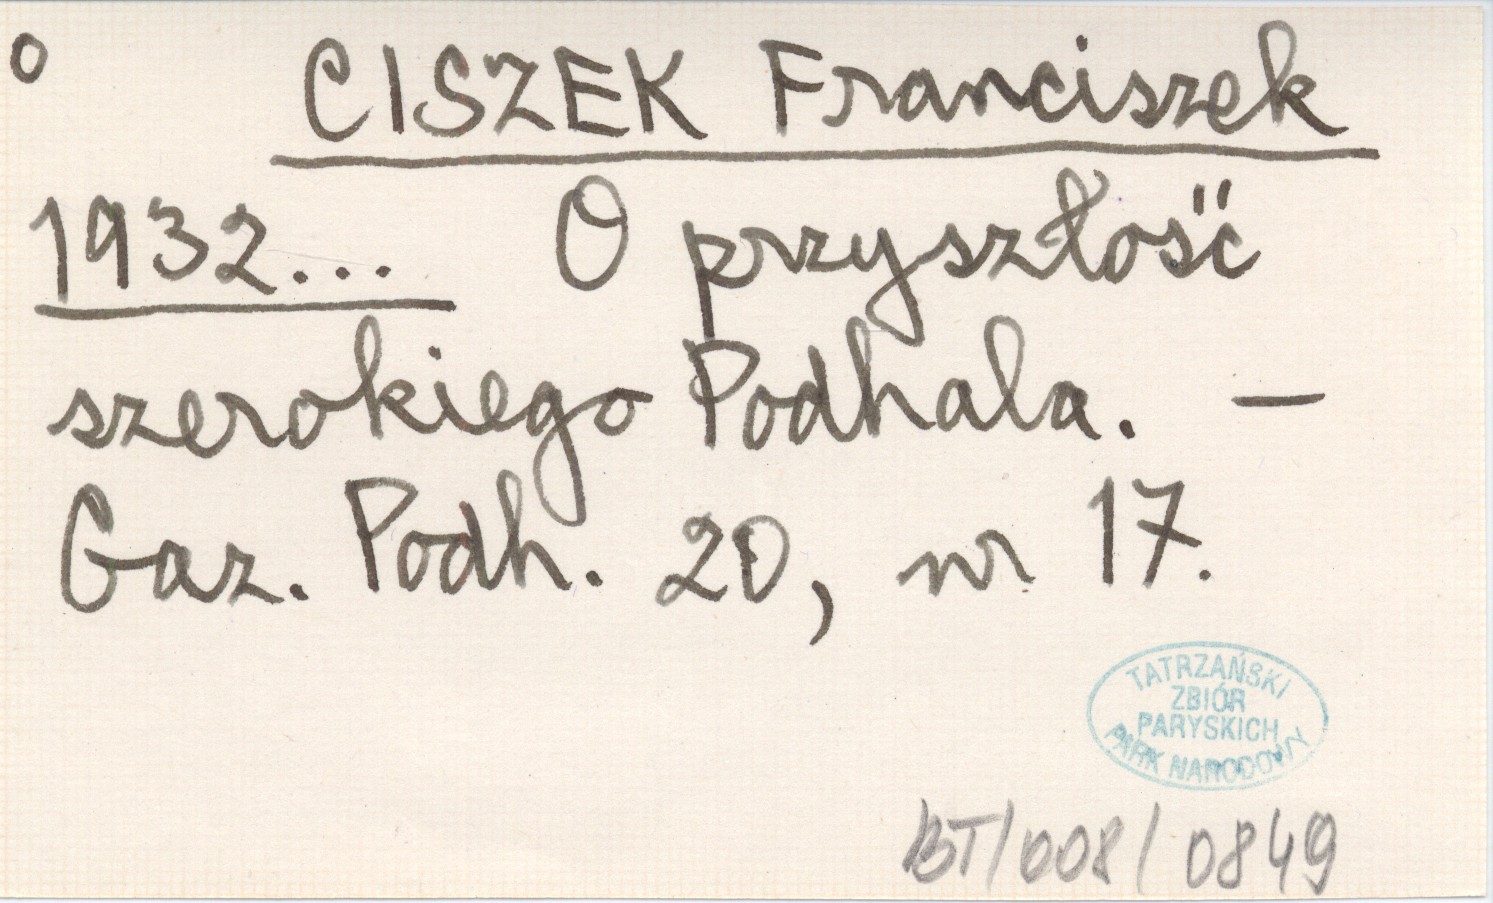 o CISZEK Franciszek
1932... O przyszłość
szerokiego Podhala. —
Gaz. Podh. 20, nr 17.
TATRZAŃSKI
ZBIÓR
PARYSKICH
PARK NARODOWY
BT/008/0849